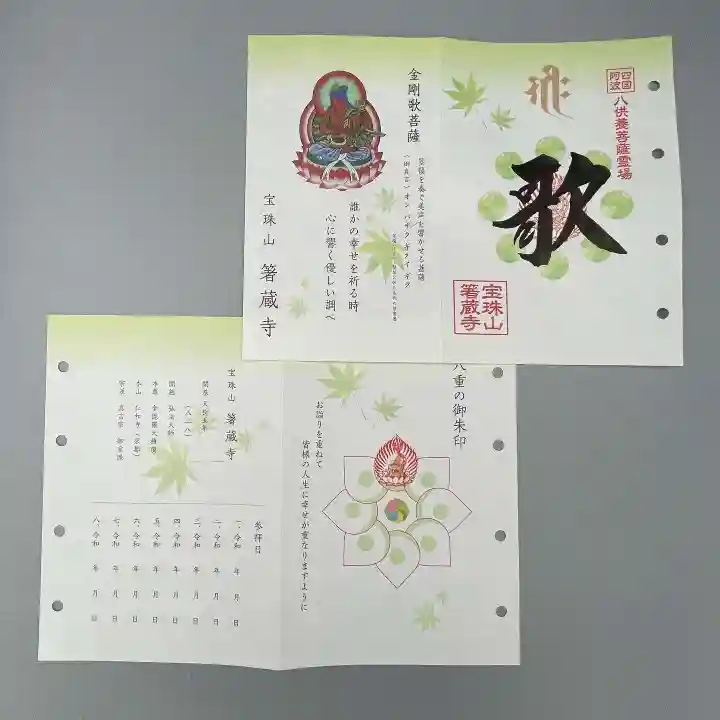 四国
阿波
八供養菩薩霊場
歌
宝珠山
箸蔵寺
金剛歌菩薩
誰かの幸せを祈る時
心に響く優しい調べ
宝珠山 箸蔵寺
八重の御朱印
お詣りを重ねて
皆様の人生に幸せが重なりますように
宝珠山 箸蔵寺
開基 天長五年
(八二八)
開祖 弘法大師
本尊 金毘羅大権現
本山 仁和寺(京都)
宗派 真言宗 御室派
参拝日
一、令和 年 月 日
二、令和 年 月 日
三、令和 年 月 日
四、令和 年 月 日
五、令和 年 月 日
六、令和 年 月 日
七、令和 年 月 日
八、令和 年 月 日